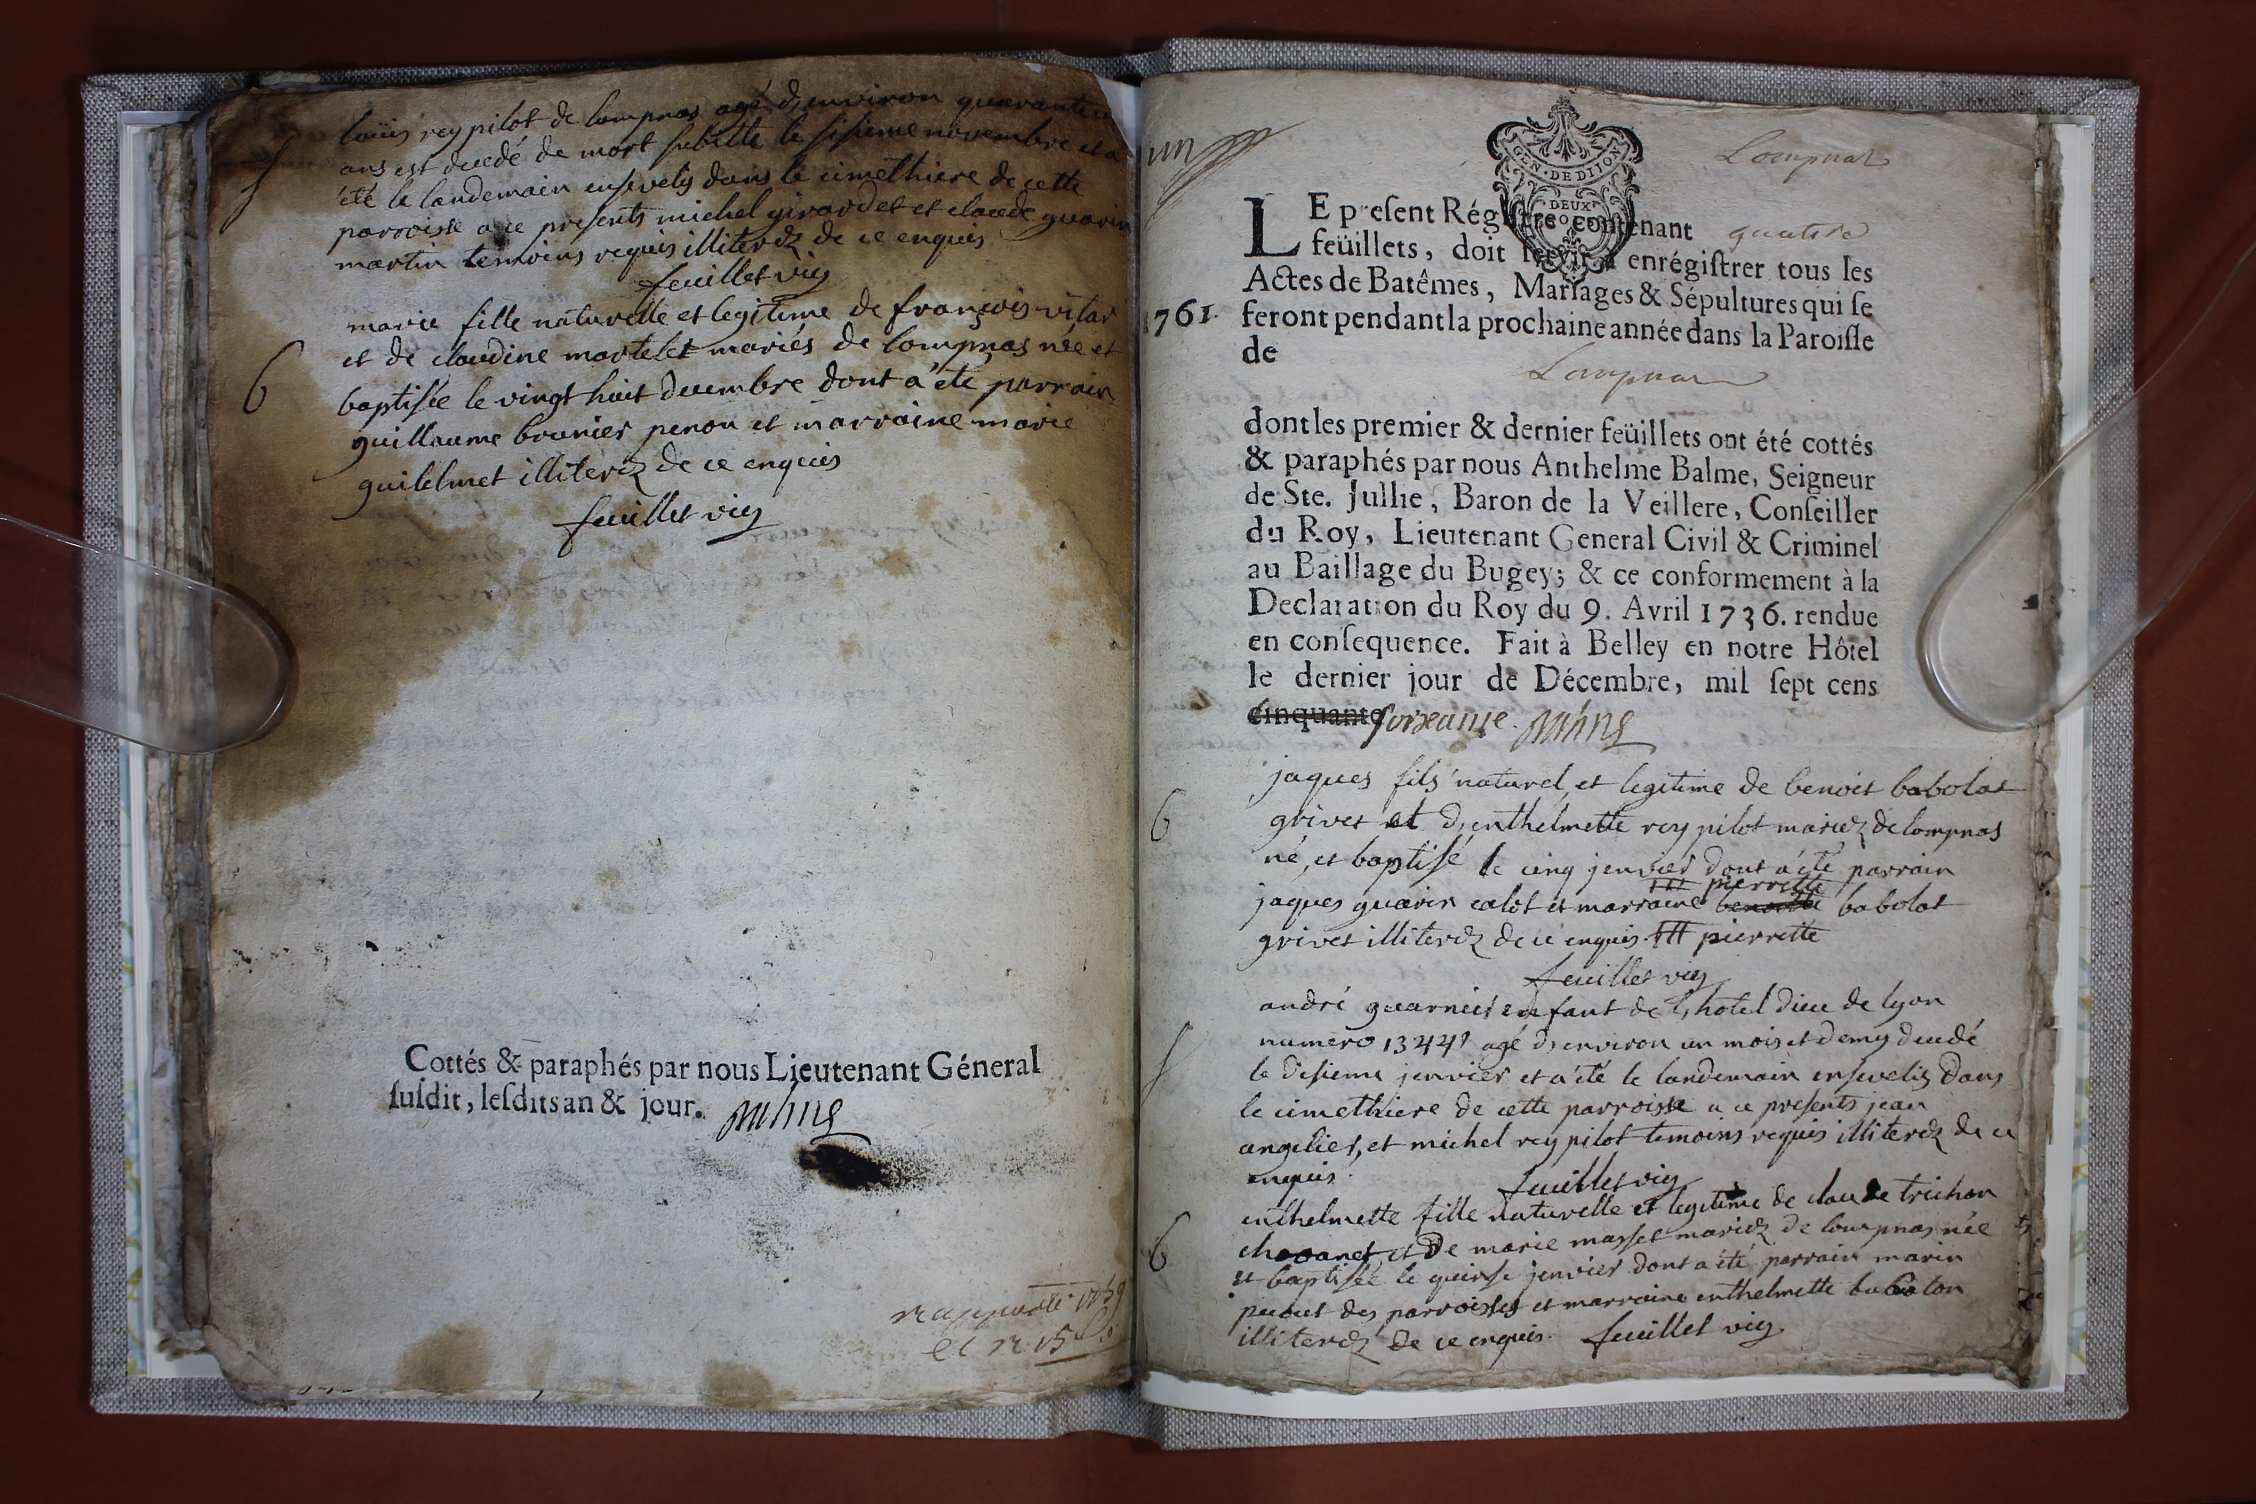 louis rey pilot de lompnas agé d'environ quarante
ans est decedé de mort subitte le sisieme novembre et a
été le landemain ensevely dans le cimethiere de cette
parroisse a ce presents michel girardet et claude guarin
martin temoins requis illiterez de ce enquis
feuillet vic
S
marie fille naturelle et legitime de françois vilar
et de claudine martelet mariés de lompnas née et
6
baptisée le vingt huit decembre dont a été parrain
guillaume brunier penon et marraine marie
guillelmet illiterez de ce enquis
feuillet vic
Cottés & paraphés par nous Lieutenant Géneral
ſuſdit, leſdits an & jour.
rapporté
un
GEN · DE DIJON
DEUX
Lompnas
LE preſent Régiſtre contenant quatre
feüillets, doit ſervir à enrégiſtrer tous les
Actes de Batêmes, Mariages & Sépultures qui ſe
1761. feront pendant la prochaine année dans la Paroiſſe
de
Lompnas
dont les premier & dernier feüillets ont été cottés
& paraphés par nous Anthelme Balme, Seigneur
de Ste. Jullie, Baron de la Veillere, Conſeiller
du Roy, Lieutenant General Civil & Criminel
au Baillage du Bugey; & ce conformement à la
Declaration du Roy du 9. Avril 1736. rendue
en conſequence. Fait à Belley en notre Hôtel
le dernier jour de Décembre, mil ſept cens
cinquante soixante.
jaques fils naturel et legitime de benoit babolat
6
grivet et d'enthelmette rey pilot mariez de lompnas
né, et baptisé le cinq jenvier dont a été parrain
pierrette
jaques guarin calot et marraine benoitte babolat
grivet illiterez de ce enquis. pierrette
feuillet vic
andré guarnier enfant de l'hotel dieu de lyon
numero agé d'environ un mois et demy decedé
S
le disieme jenvier et a été le landemain ensevely dans
le cimethiere de cette parroisse a ce presents jean
angelier, et michel rey pilot temoins requis illiterez de ce
enquis.
feuillet vic
enthelmette fille naturelle et legitime de claude trichon
6
et de marie masset mariez de lompnas née
et baptisée le quinse jenvier dont a été parrain marin
des parroisses et marraine enthelmette babolon
illiterez de ce enquis. feuillet vic